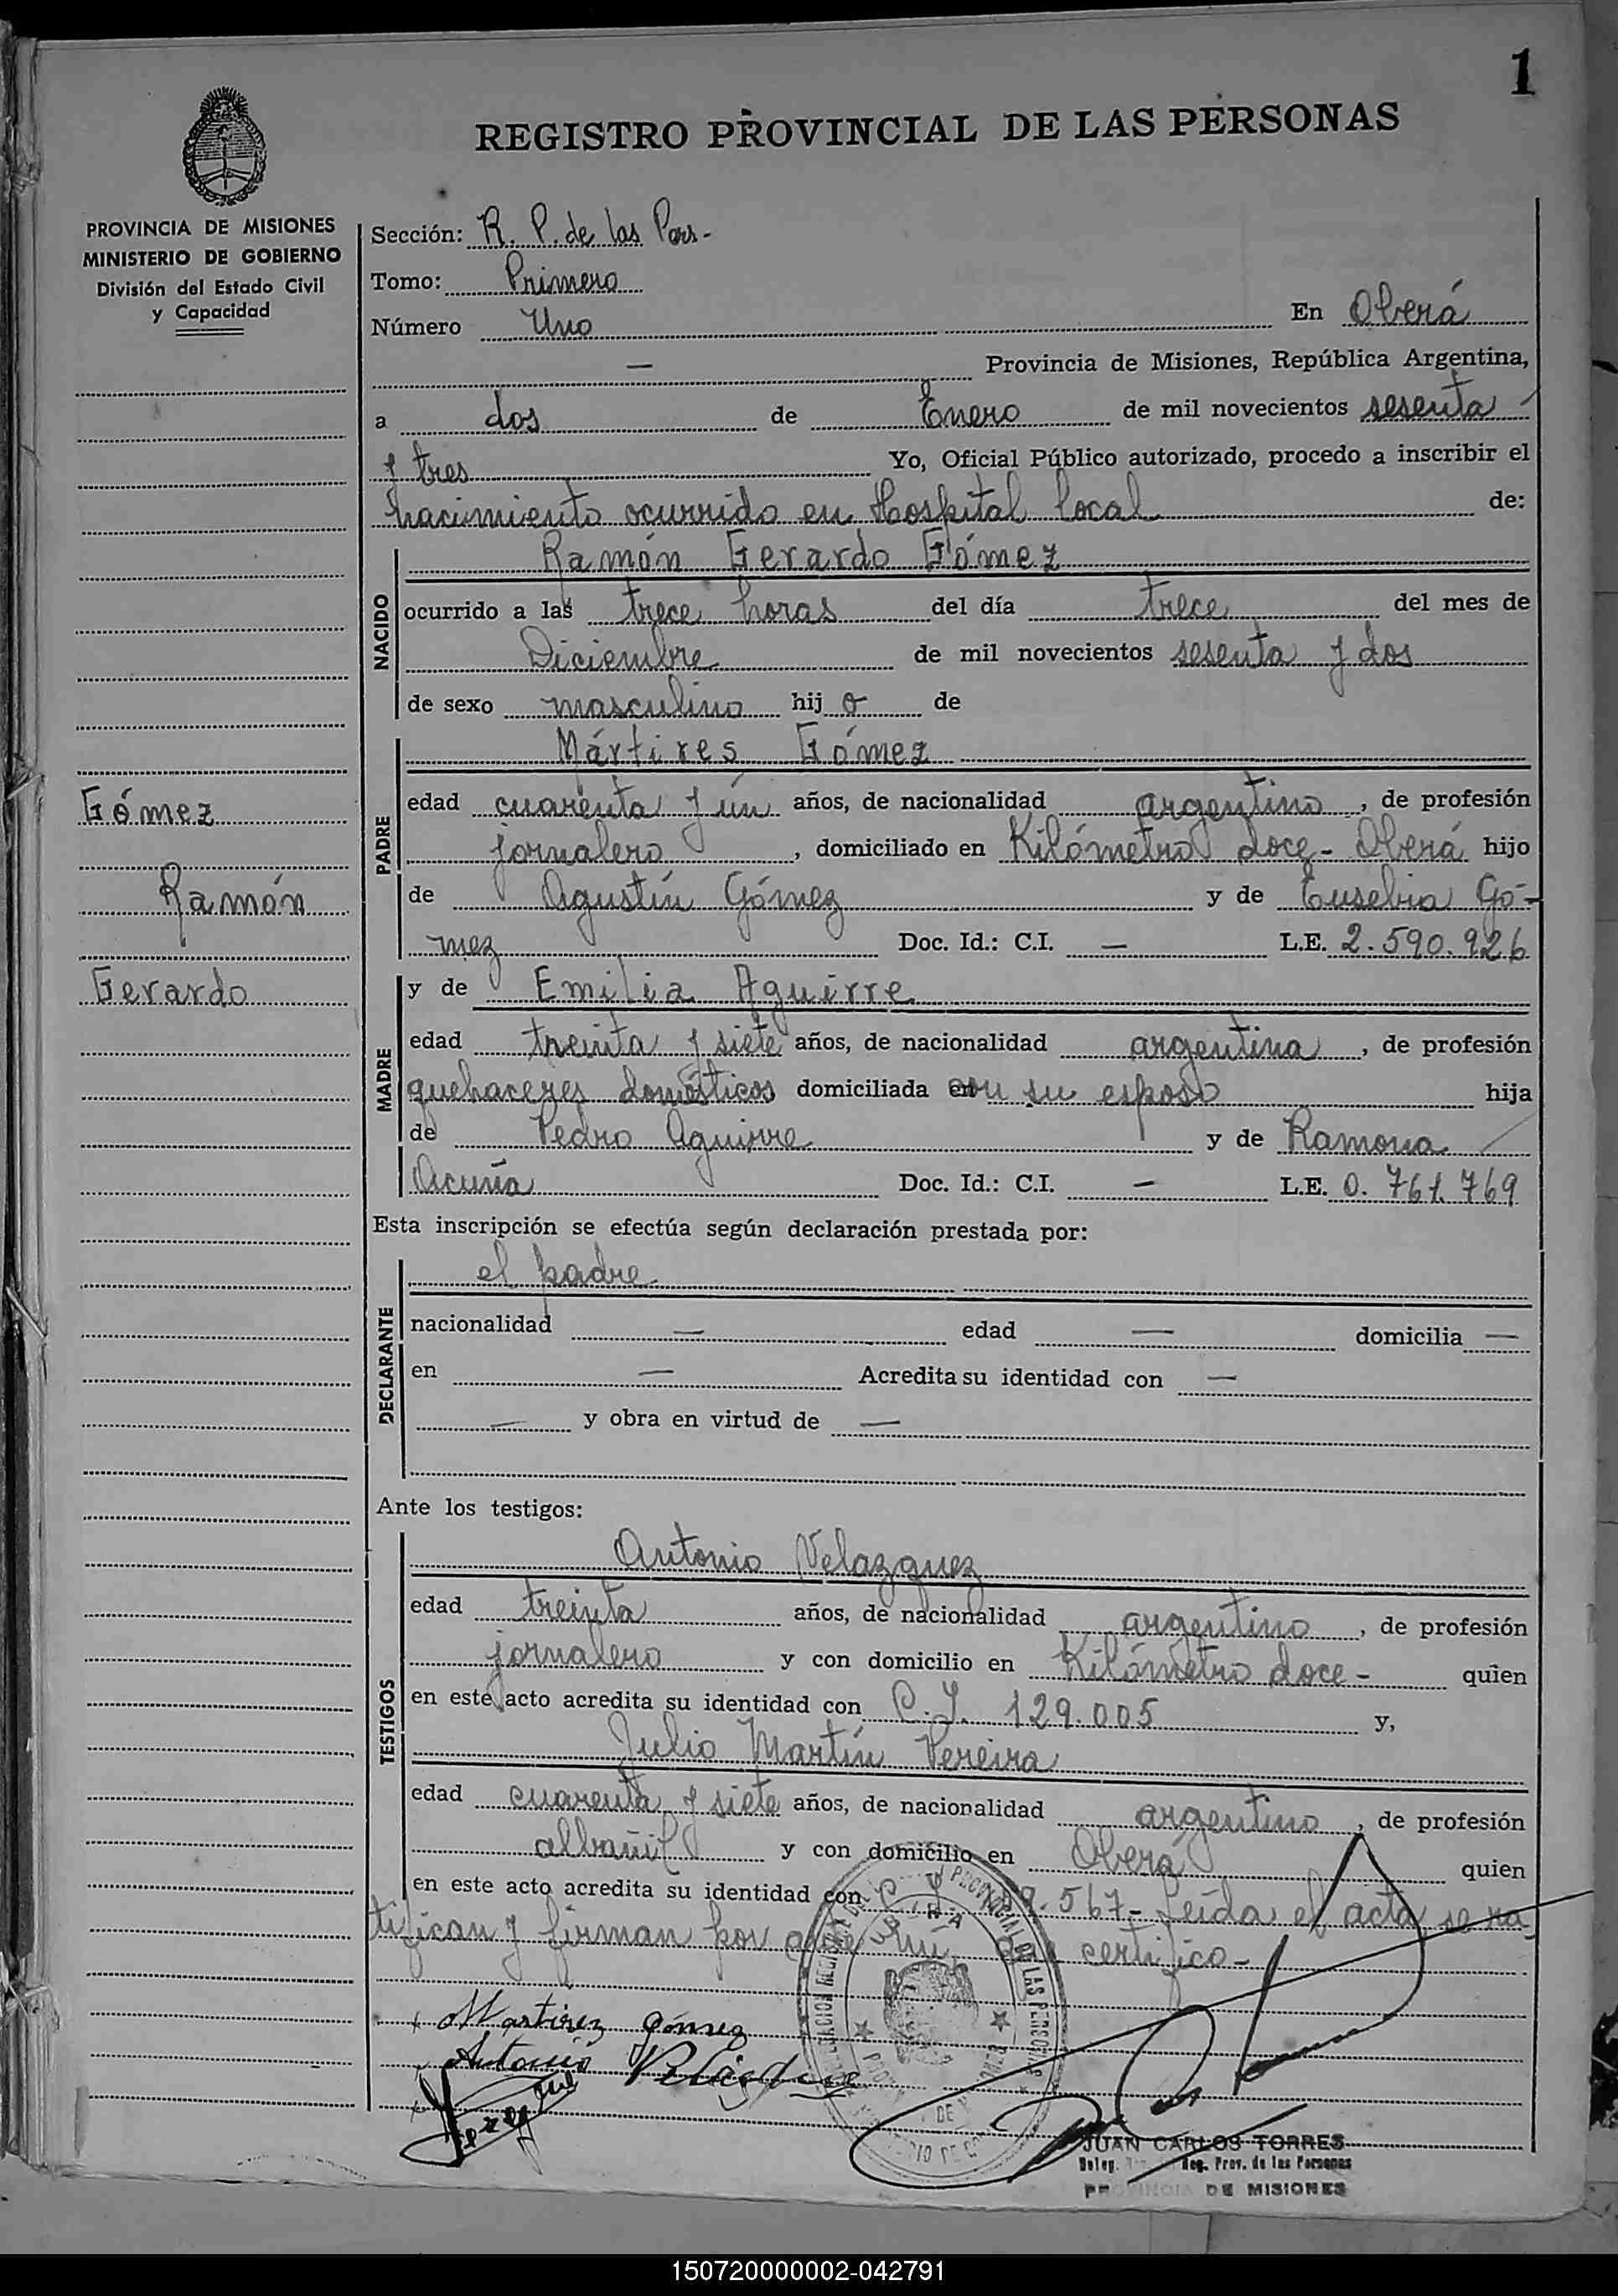 1
REGISTRO PROVINCIAL DE LAS PERSONAS
PROVINCIA DE MISIONES
MINISTERIO DE GOBIERNO
División del Estado Civil
y Capacidad
Sección: R. P. de las Pers.-
Tomo: Primero
Número Uno En Oberá
— Provincia de Misiones, República Argentina,
a dos de Enero de mil novecientos sesenta
y tres Yo, Oficial Público autorizado, procedo a inscribir el
nacimiento ocurrido en Hospital local de:
NACIDO
Ramón Gerardo Gómez
ocurrido a las trece horas del día trece del mes de
Diciembre de mil novecientos sesenta y dos
de sexo masculino hij o de
PADRE
Mártires Gómez
edad cuarenta y un años, de nacionalidad argentino, de profesión
jornalero, domiciliado en Kilómetro doce- Oberá hijo
de Agustín Gómez y de Eusebia Gó-
mez Doc. Id.: C.I. — L.E. 2.590.926
Gómez
Ramón
Gerardo
MADRE
y de Emilia Aguirre
edad treinta y siete años, de nacionalidad argentina, de profesión
quehaceres domésticos domiciliada con su esposo hija
de Pedro Aguirre y de Ramona
Acuña Doc. Id.: C.I. — L.E. 0.761.769
Esta inscripción se efectúa según declaración prestada por:
DECLARANTE
el padre
nacionalidad — edad — domicilia —
en — Acredita su identidad con —
— y obra en virtud de —
Ante los testigos:
TESTIGOS
Antonio Velazquez
edad treinta años, de nacionalidad argentino, de profesión
jornalero y con domicilio en Kilómetro doce- quien
en este acto acredita su identidad con C.I. 129.005 y,
Julio Martín Pereira
edad cuarenta y siete años, de nacionalidad argentino, de profesión
albañil y con domicilio en Oberá quien
en este acto acredita su identidad con C. I. 9.567- Leída el acta se ra-
tifican y firman por ante mí, que certifico-
Martirez gómez
Antonio
JUAN CARLOS TORRES
Deleg. Reg. Prov. de las Personas
PROVINCIA DE MISIONES
150720000002-042791